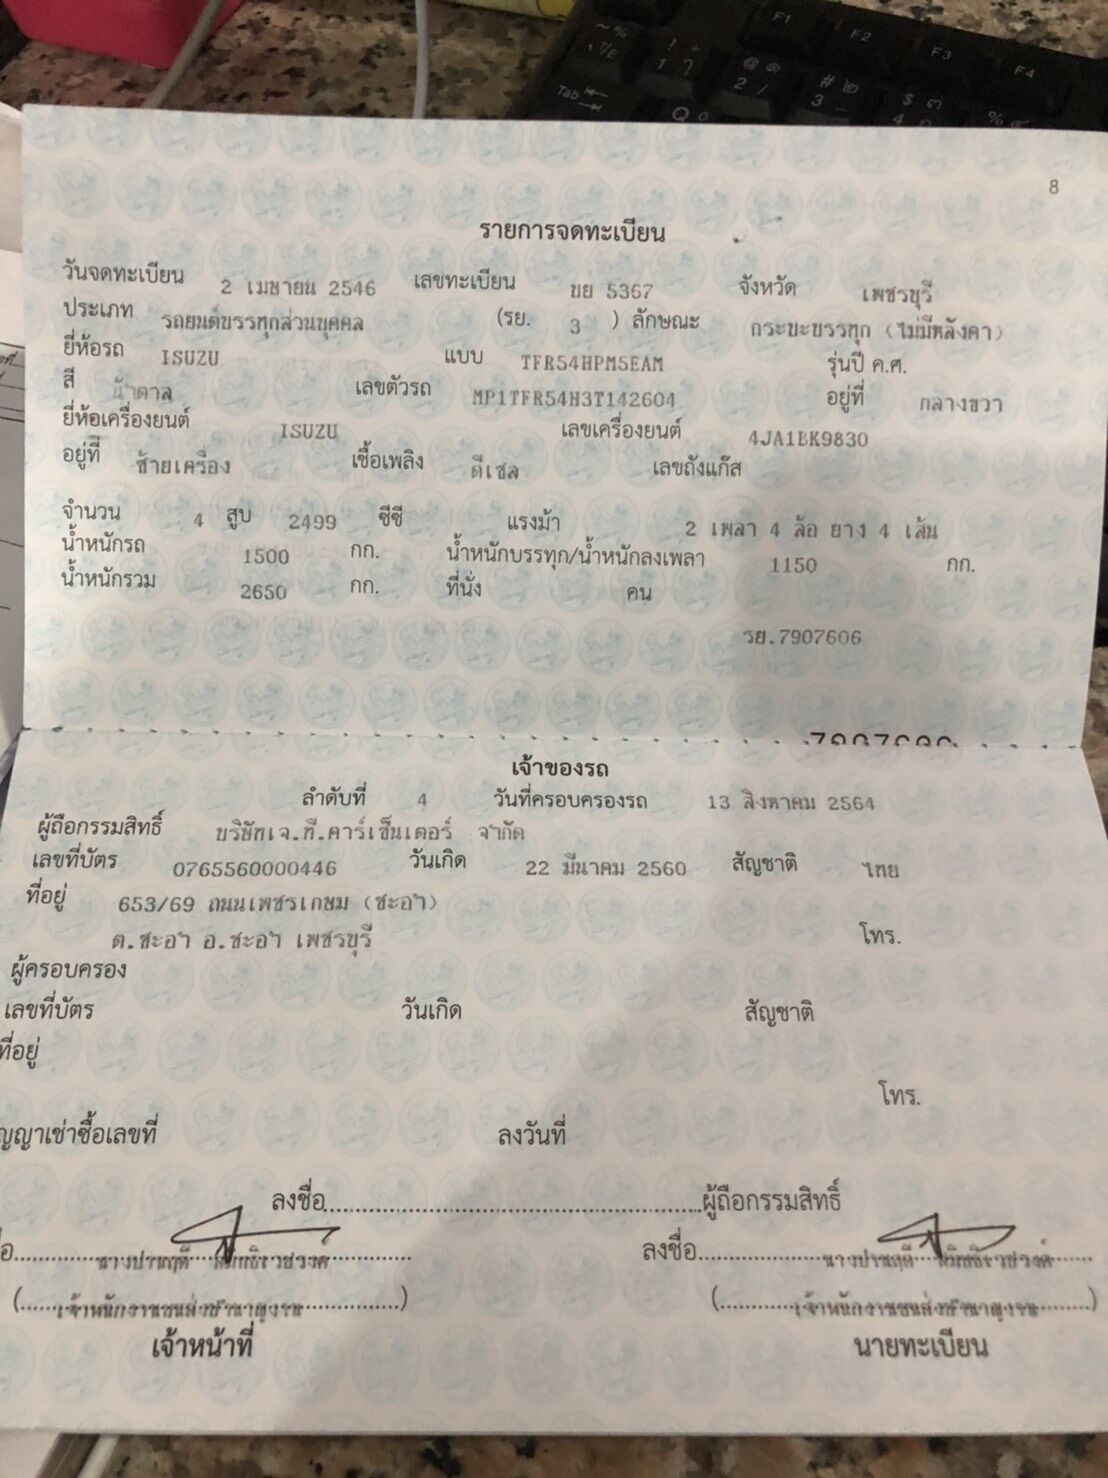 8
รายการจดทะเบียน
วันจดทะเบียน 2 เมษายน 2546 เลขทะเบียน บย 5367 จังหวัด เพชรบุรี
ประเภท รถยนต์บรรทุกส่วนบุคคล (รย. 3 ) ลักษณะ กระบะบรรทุก (ไม่มีหลังคา)
ยี่ห้อรถ ISUZU แบบ TFR54HPM5EAM รุ่นปี ค.ศ.
สี น้ำตาล เลขตัวรถ MP1TFR54H3T142604 อยู่ที่ กลางขวา
ยี่ห้อเครื่องยนต์ ISUZU เลขเครื่องยนต์ 4JA1BK9830
อยู่ที่ ซ้ายเครื่อง เชื้อเพลิง ดีเซล เลขถังแก๊ส
จำนวน 4 สูบ 2499 ซีซี แรงม้า 2 เพลา 4 ล้อ ยาง 4 เส้น
น้ำหนักรถ 1500 กก. น้ำหนักบรรทุก/น้ำหนักลงเพลา 1150 กก.
น้ำหนักรวม 2650 กก. ที่นั่ง คน
รย.7907606
เจ้าของรถ
ลำดับที่ 4 วันที่ครอบครองรถ 13 สิงหาคม 2564
ผู้ถือกรรมสิทธิ์ บริษัทเจ.ที.คาร์เซ็นเตอร์ จำกัด
เลขที่บัตร 0765560000446 วันเกิด 22 มีนาคม 2560 สัญชาติ ไทย
ที่อยู่ 653/69 ถนนเพชรเกษม (ชะอำ)
ต.ชะอำ อ.ชะอำ เพชรบุรี โทร.
ผู้ครอบครอง
เลขที่บัตร วันเกิด สัญชาติ
ที่อยู่
โทร.
ญญาเช่าซื้อเลขที่ ลงวันที่
ลงชื่อ ผู้ถือกรรมสิทธิ์
ลงชื่อ
เจ้าหน้าที่ นายทะเบียน